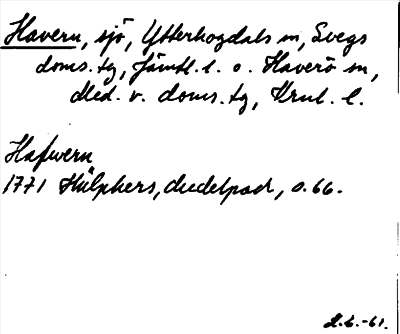 Havern, sjö, Ytterhogdals sn, Svegs
doms.tg, Jämtl. l. o. Haverö sn,
Med. v. doms.tg, Vrnl. l.
Hafwern
1771 Hülphers, Medelpad, s. 66.
2.6.-61.